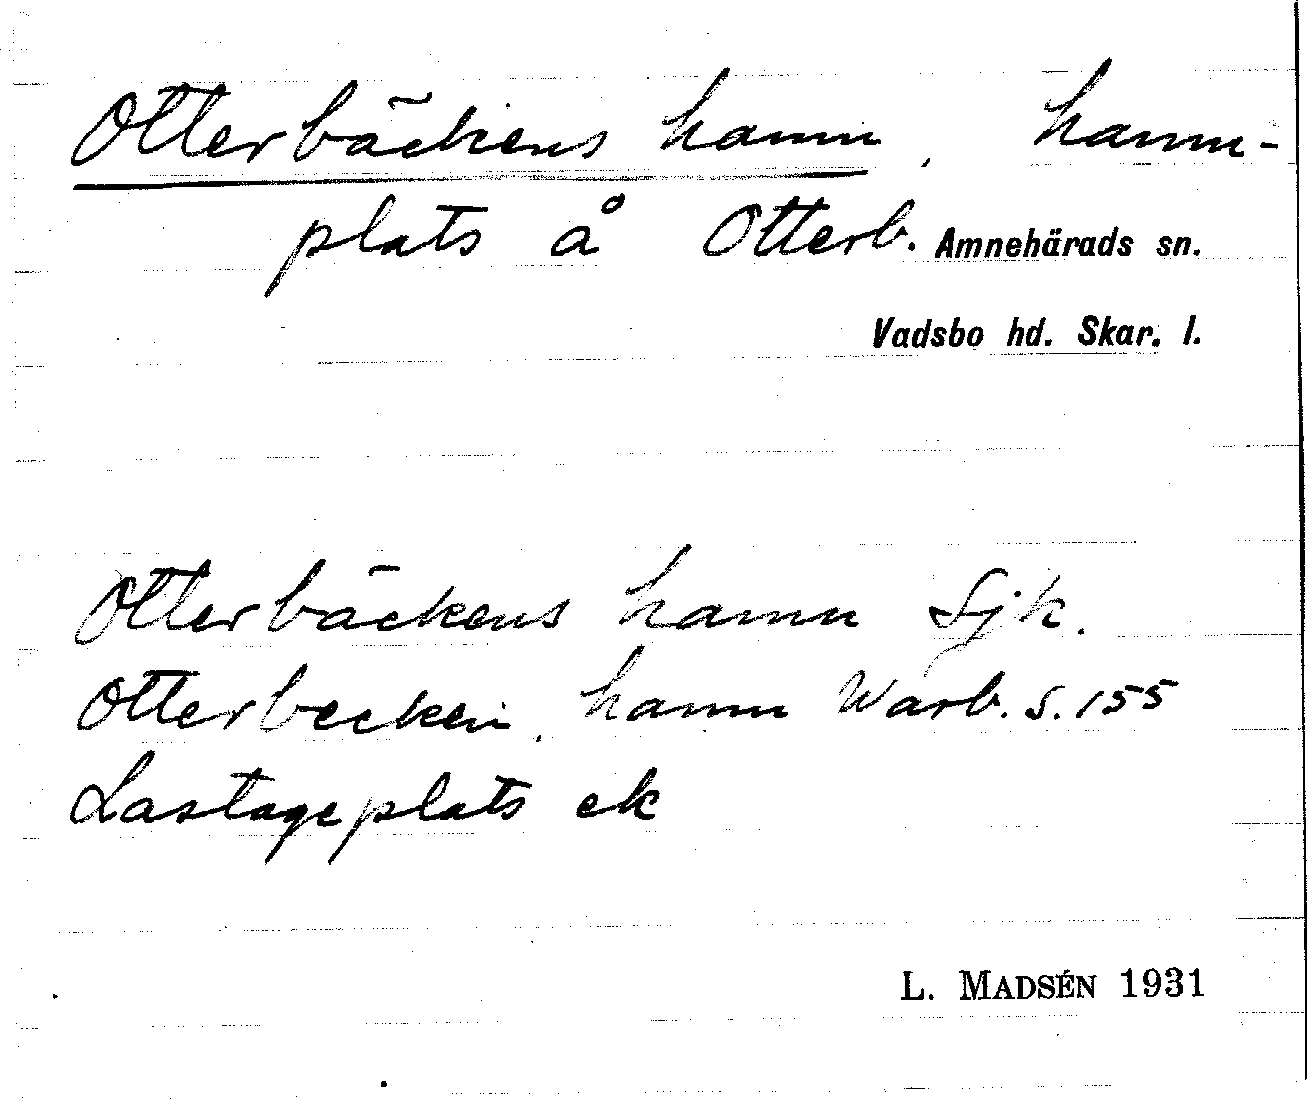 Otterbäckens hamn, hamn-
plats å Otterb. Amnehärads sn.
Vadsbo hd. Skar. l.
Otterbäckens hamn Sjk.
Otterbecken, hamn Warb. s. 155
Lastageplats ek
L. MADSÉN 1931